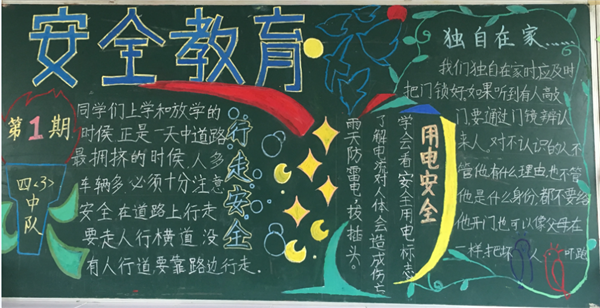 安全教育
第1期
四<3>
中队
同学们上学和放学的
时候,正是一天中道路
最拥挤的时候,人多
车辆多,必须十分注意
安全在道路上行走
要走人行横道,没
有人行道要靠路边行走.
行走安全
用电安全
学会看安全用电标志
了解电流对人体会造成伤亡
雨天防雷电,拔插头。
独自在家......
我们独自在家时应及时
把门锁好.如果听到有人敲
门要通过门镜辨认
来人.对不认识的人不
管他有什么理由,也不管
他是什么身份,都不要给
他开门,也可以像父母在
一样,把坏人